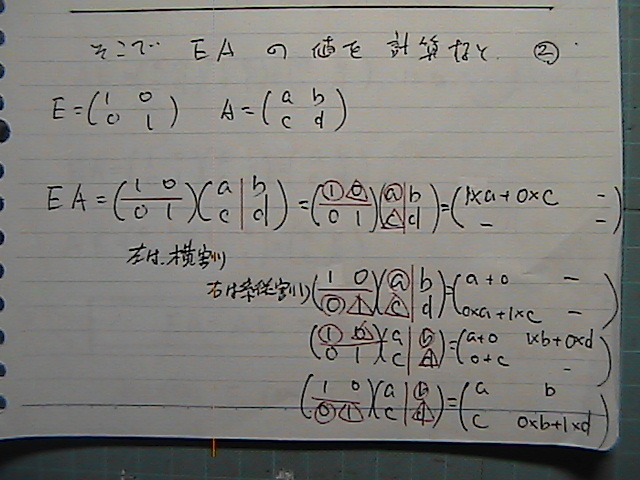 そこで EA の 値を 計算すると ②
E=(1 0 0 1) A=(a b c d)
EA=(1 0 0 1)(a b c d)=(1 0 0 1)(a b c d)=(1×a+0×c - - -)
左は、横割り
右は縦割り (1 0 0 1)(a b c d)=(a+0 - 0×a+1×c -)
(1 0 0 1)(a b c d)=(a+0 1×b+0×d 0+c -)
(1 0 0 1)(a b c d)=(a b c 0×b+1×d)